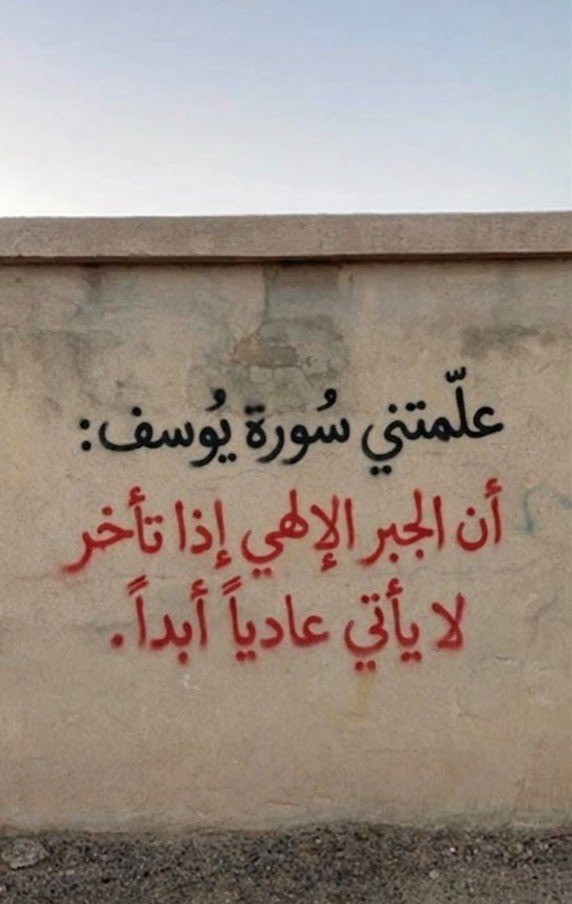 علّمتني سُورة يُوسف:
أن الجبر الإلهي إذا تأخر
لا يأتي عادياً أبداً.